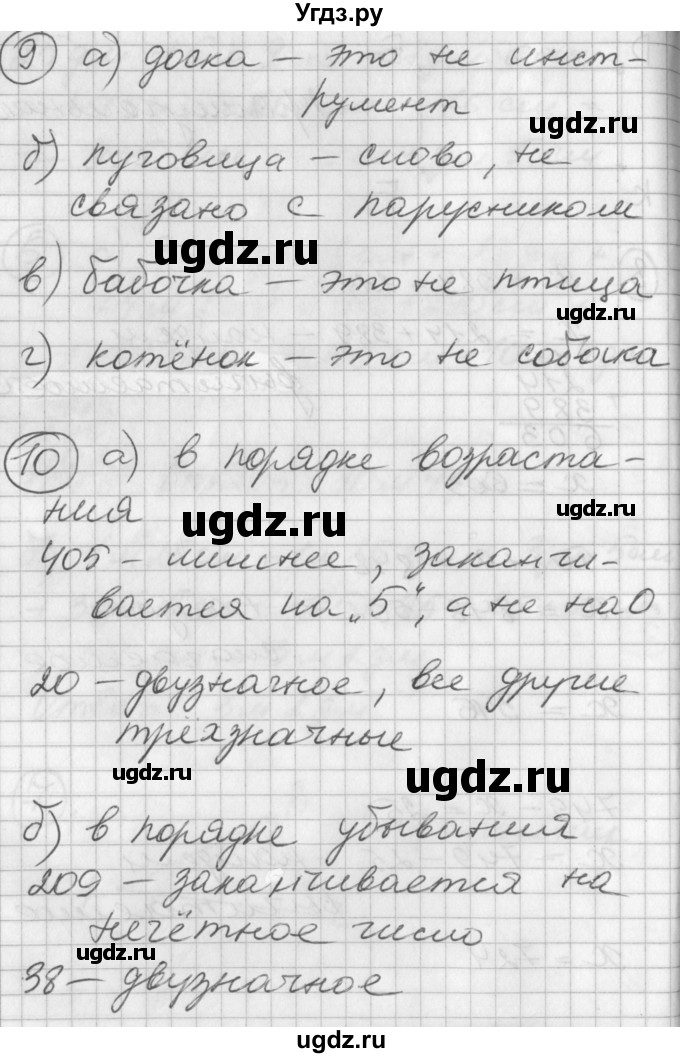 Угдз.ру
9 а) доска – это не инст-
румент
ugdz.ru
б) пуговица – слово, не
связано с парусником
ugdz.ru
ugdz.ru
в) бабочка – это не птица
ugdz.ru
г) котёнок – это не собачка
10 а) в порядке возраста-
ния
ugdz.ru
ugdz.ru
405 – лишнее, заканчи-
вается на „5“, а не на 0
20 – двузначное, все другие
трёхзначные
ugdz.ru
ugdz.ru
б) в порядке убывания
209 – заканчивается на
нечётное число
ugdz.ru
ugdz.ru
38 – двузначное
ugdz.ru